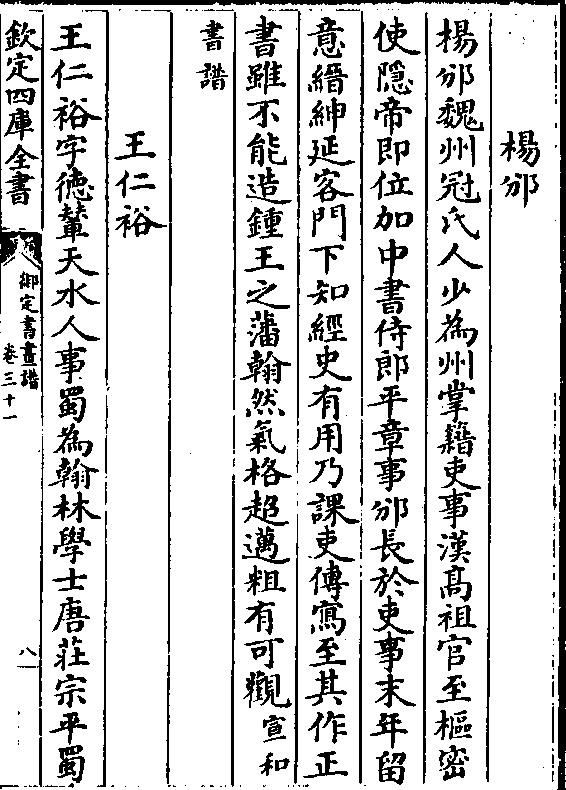 楊邠
楊邠魏州冠氏人少為州掌籍吏事漢髙祖官至樞密
使隠帝即位加中書侍郎平章事邠長於吏事末年留
意縉紳延客門下知經史有用乃課吏傳寫至其作正
書雖不能造鍾王之藩翰然氣格超邁粗有可觀宣和
書譜
王仁裕
王仁裕字徳輦天水人事蜀為翰林學士唐莊宗平蜀
欽定四庫全書
御定書畫譜
卷三十一
八